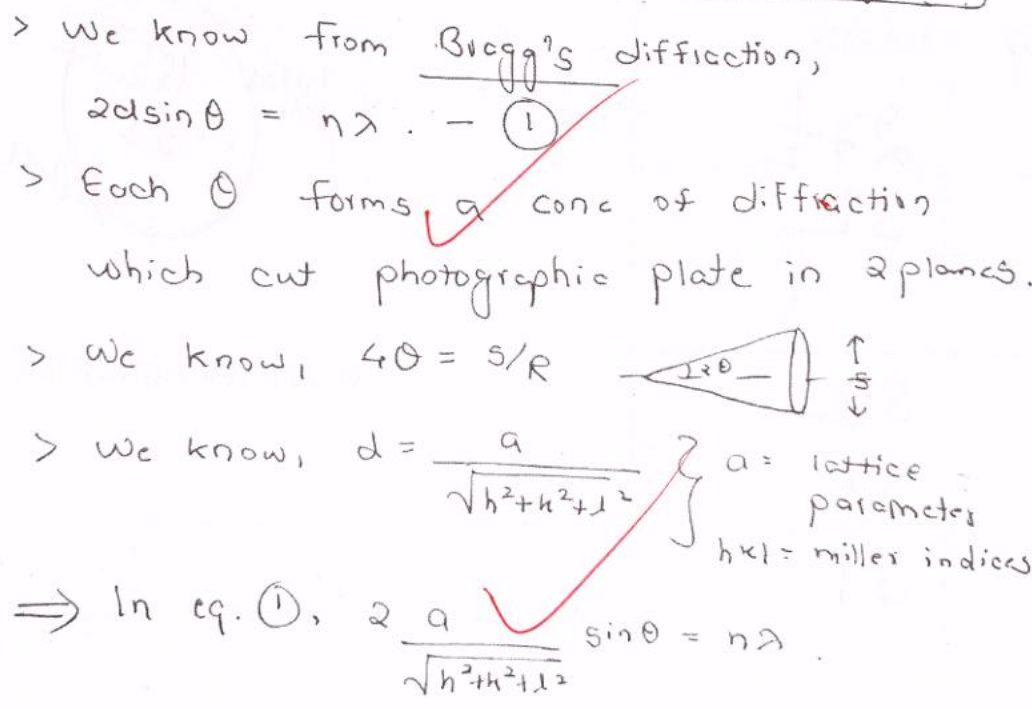 > We know from Bragg's diffraction,
2dsinθ = nλ. - ①
> Each θ forms a cone of diffraction
which cut photographic plate in 2 planes.
> We know, 4θ = S/R
2θ
S
> We know, d = a / √h²+k²+l² } a = lattice
parameter
hkl = miller indices
⇒ In eq. ①, 2 a / √h²+k²+l² sinθ = nλ.